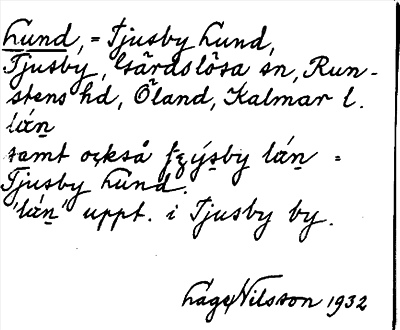 Lund, = Tjusby Lund,
Tjusby, Gärdslösa sn, Run-
stens hd, Öland, Kalmar l.
lán̠
samt också
Tjusby Lund.
'lán̠' uppt. i Tjusby by.
Låge Nilsson 1932